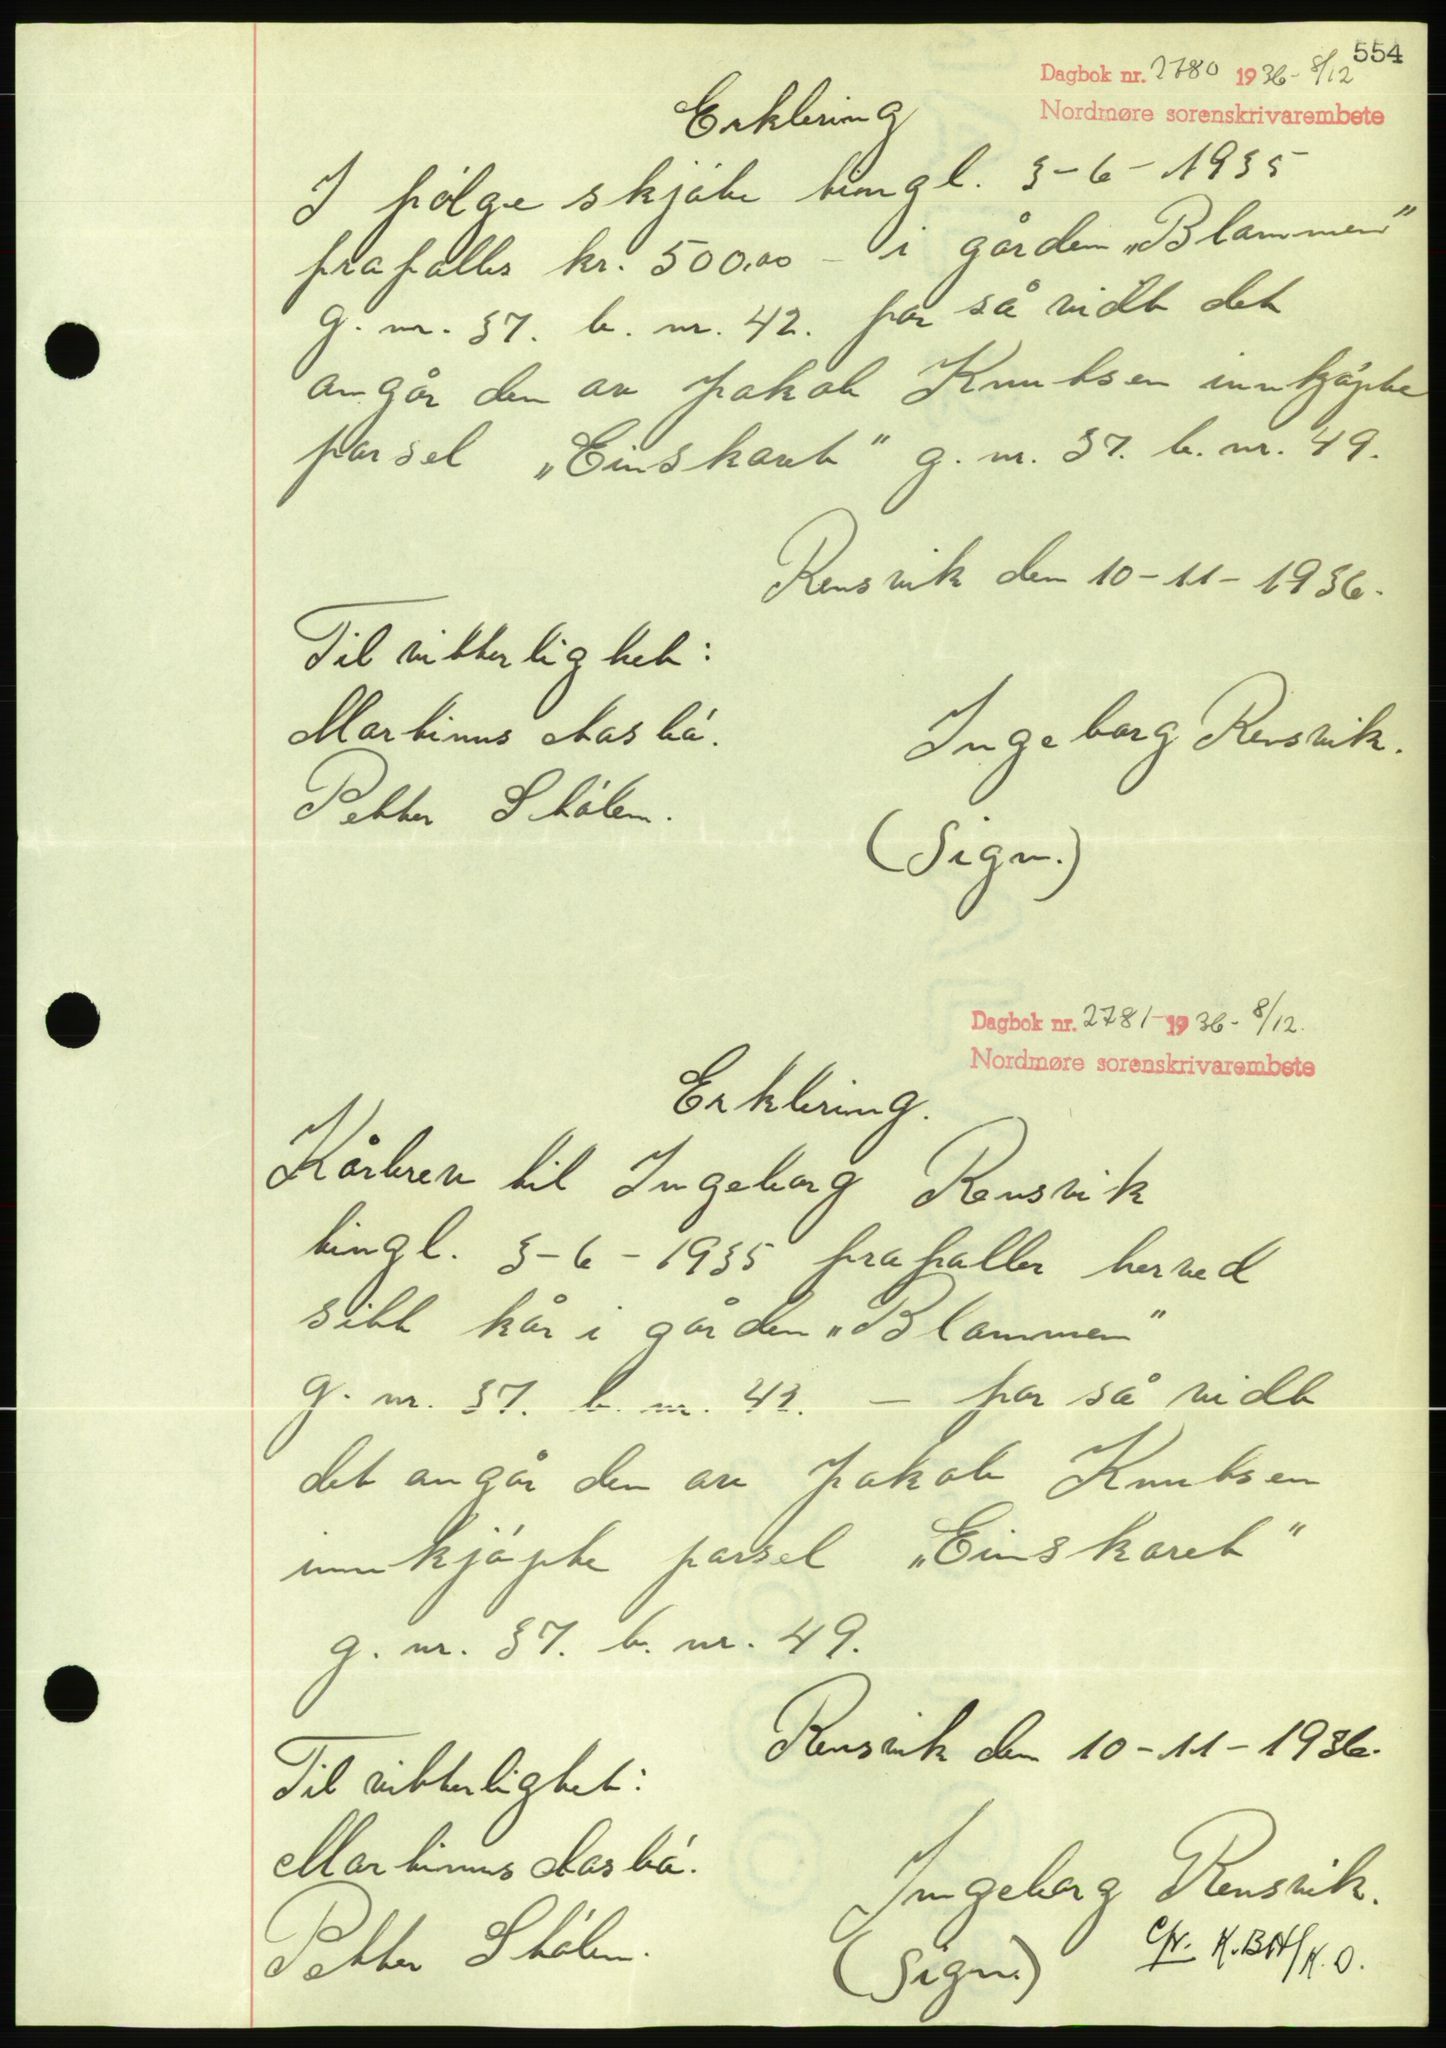 554
Dagbok nr. 2780 1936 - 8/12
Nordmøre sorenskrivarembete
Erklering
I følge skjøte tingl. 3-6-1935
frafalles kr. 500.00 - i gården „Blammen"
g. nr. 37. b. nr. 42. for så vidt det
angår den av Jakob Knutsen innkjøpte
parsel „Einskaret" g. nr. 37. b. nr. 49.
Rensvik den 10-11-1936.
Til vitterlighet:
Martinus
Ingeborg Rensvik.
Petter Stølen.
(Sign.)
Dagbok nr. 2781 - 1936 - 8/12.
Nordmøre sorenskrivarembete
Erklering.
Kårbrev til Ingeborg Rensvik
tingl. 3-6-1935 frafaller herved
sitt kår i gården „Blammen"
g. nr. 37. b. nr. 42. - for så vidt
det angår den av Jakob Knutsen
innkjøpte parsel „Einskaret"
g. nr. 37. b. nr. 49.
Rensvik den 10-11-1936.
Til vitterlighet:
Martinus
Ingeborg Rensvik.
Petter Stølen.
(Sign.)